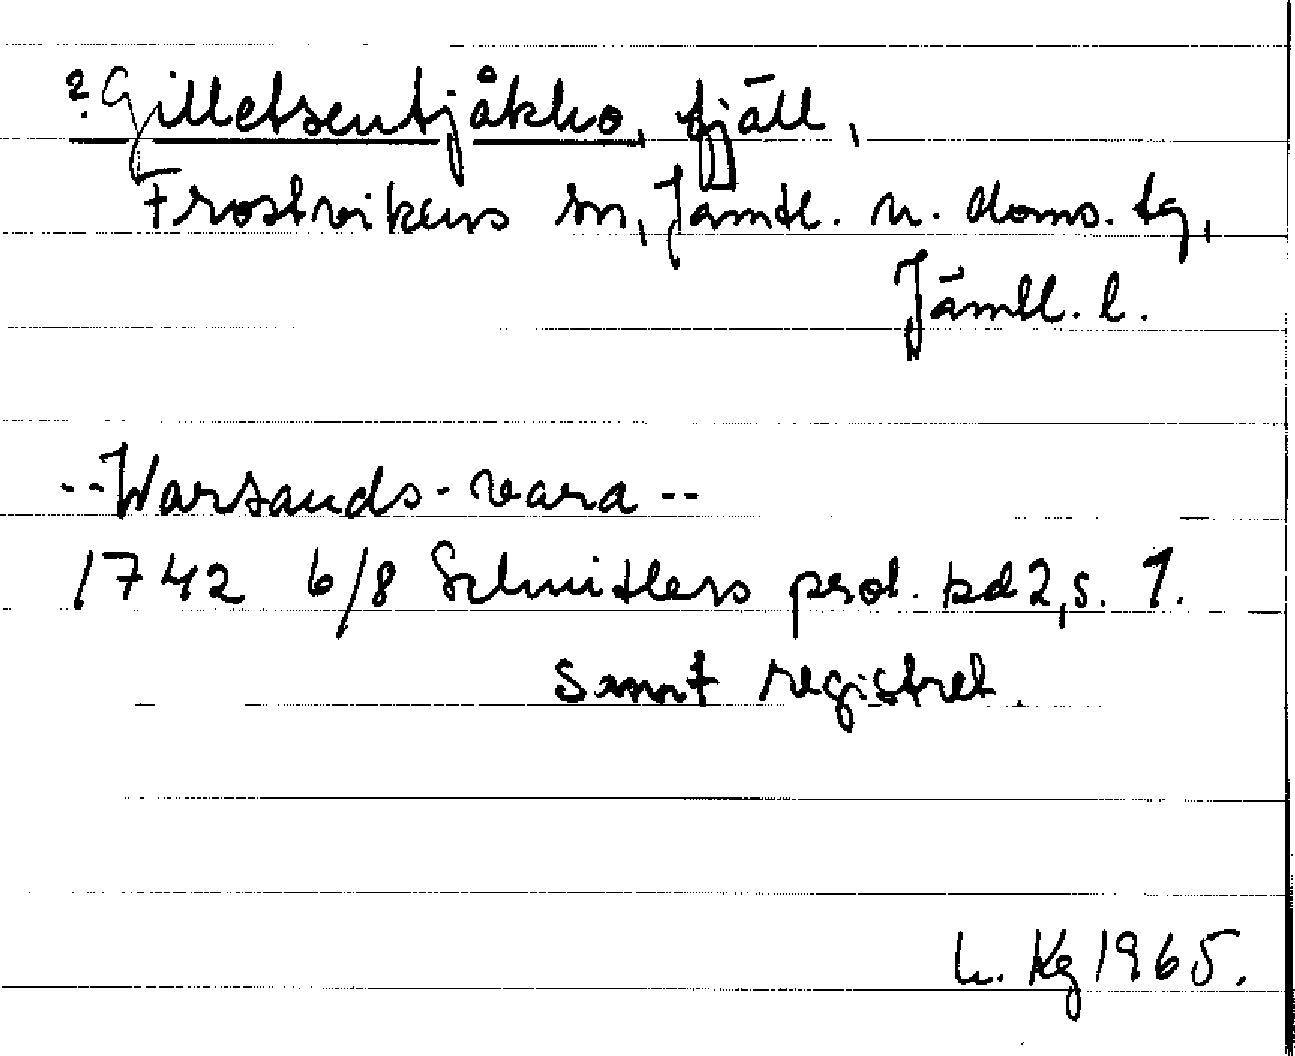 ? Gilletsentjåkko, fjäll,
Frostvikens sn, Jämtl. n. doms. tg,
Jämtl. l.
--Warsands-vara--
1742 6/8 Schnitlers prot. bd 2, s. 1.
Samt registret.
L. Kg 1965.